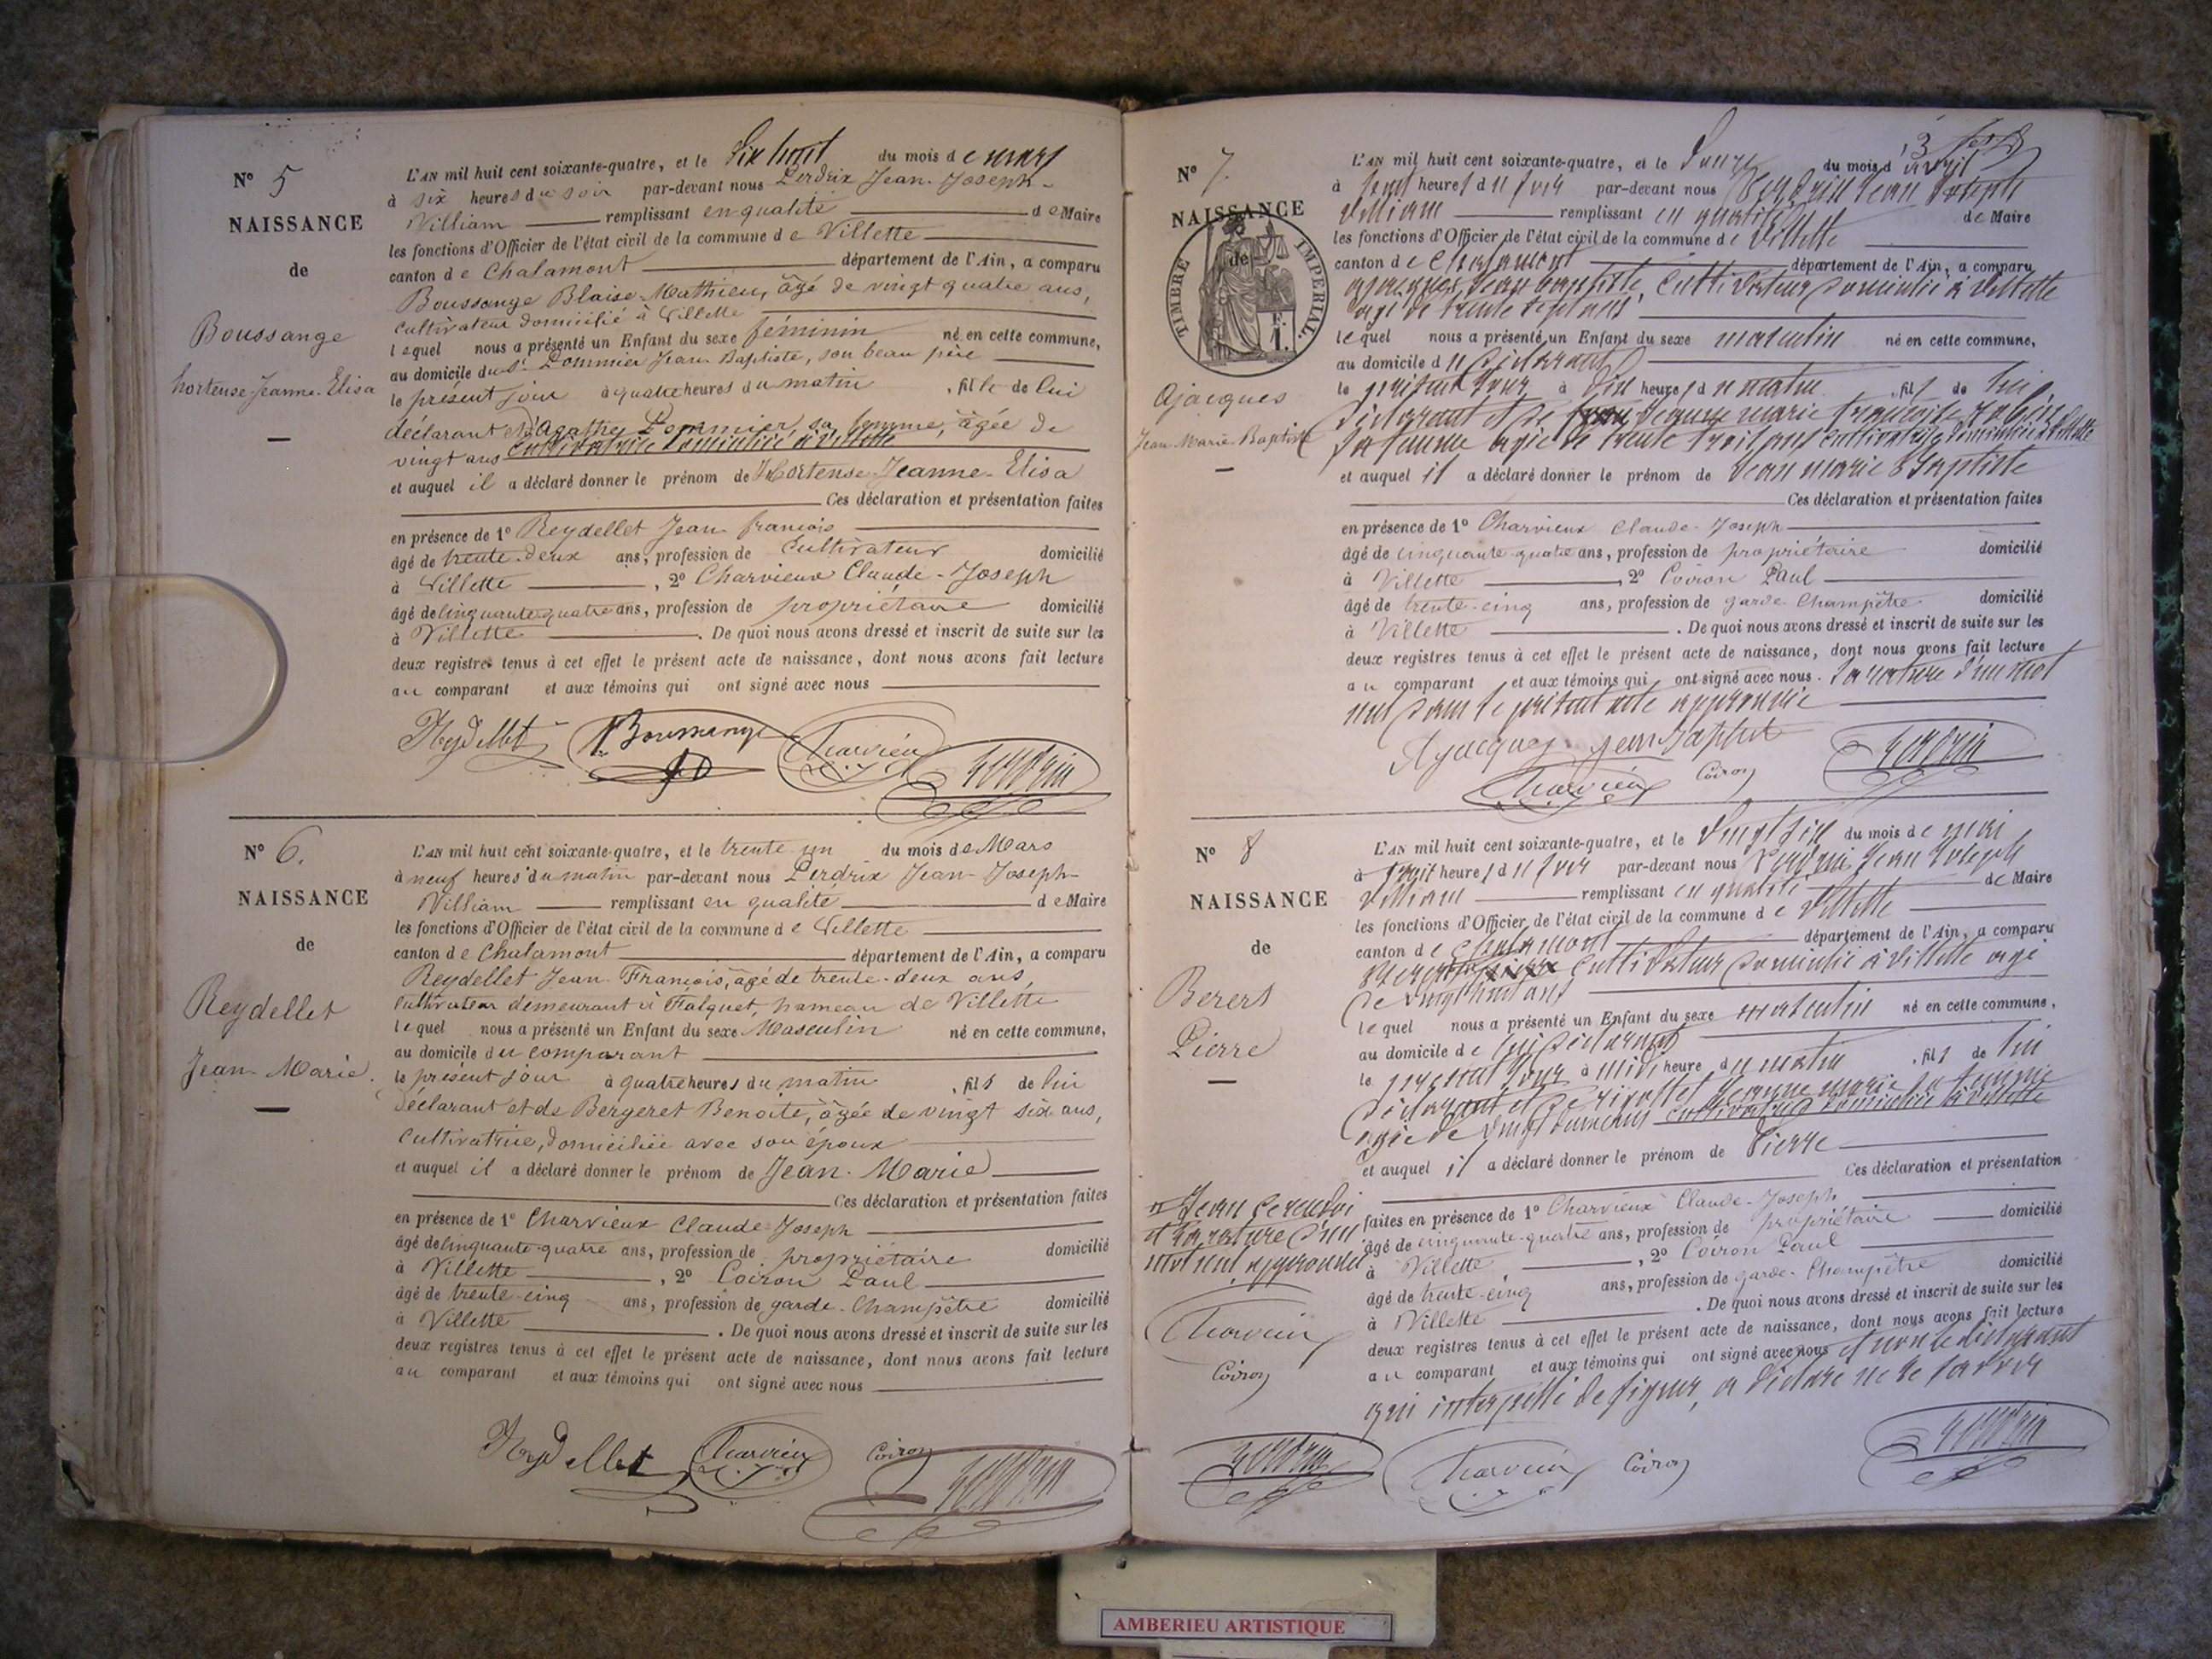 N° 5
NAISSANCE
de
Boussange
hortense-Jeanne-Elisa
L'AN mil huit cent soixante-quatre, et le dix huit du mois de mars
à six heures du soir par-devant nous Perdrix Jean-Joseph-
William remplissant en qualité de Maire
les fonctions d'Officier de l'état civil de la commune de Villette
canton de Chalamont département de l'Ain, a comparu
Boussange Blaise-Mathieu, âgé de vingt quatre ans,
cultivateur domicilié à Villette
lequel nous a présenté un Enfant du sexe féminin né en cette commune,
au domicile du Sr Pommier Jean-Baptiste, son beau père
le présent jour à quatre heures du matin, fille de lui
déclarant et d'Agathe Pommier, sa femme, âgée de
vingt ans cultivatrice domiciliée à Villette
et auquel il a déclaré donner le prénom de Hortense-Jeanne-Elisa
Ces déclaration et présentation faites
en présence de 1° Reydellet Jean françois
âgé de trente-deux ans, profession de Cultivateur domicilié
à Villette, 2° Charvieux Claude-Joseph
âgé de cinquante-quatre ans, profession de propriétaire domicilié
à Villette. De quoi nous avons dressé et inscrit de suite sur les
deux registres tenus à cet effet le présent acte de naissance, dont nous avons fait lecture
au comparant et aux témoins qui ont signé avec nous
Reydellet Boussange Charvieux Perdrix
N° 6.
NAISSANCE
de
Reydellet
Jean-Marie.
L'AN mil huit cent soixante-quatre, et le trente un du mois de Mars
à neuf heures du matin par-devant nous Perdrix Jean-Joseph-
William remplissant en qualité de Maire
les fonctions d'Officier de l'état civil de la commune de Villette
canton de Chalamont département de l'Ain, a comparu
Reydellet Jean-François, âgé de trente-deux ans,
cultivateur demeurant à Falquet, hameau de Villette
lequel nous a présenté un Enfant du sexe Masculin né en cette commune,
au domicile du comparant
le présent jour à quatre heures du matin, fils de lui
déclarant et de Bergeret Benoite, âgée de vingt six ans,
Cultivatrice, domiciliée avec son époux
et auquel il a déclaré donner le prénom de Jean-Marie
Ces déclaration et présentation faites
en présence de 1° Charvieux Claude-Joseph
âgé de cinquante-quatre ans, profession de propriétaire domicilié
à Villette, 2° Coiron Paul
âgé de trente-cinq ans, profession de garde-Champêtre domicilié
à Villette. De quoi nous avons dressé et inscrit de suite sur les
deux registres tenus à cet effet le présent acte de naissance, dont nous avons fait lecture
au comparant et aux témoins qui ont signé avec nous
Reydellet Charvieux Coiron Perdrix
13
N° 7.
NAISSANCE
de
TIMBRE IMPERIAL
Ajacques
Jean-Marie Baptiste
L'AN mil huit cent soixante-quatre, et le douze du mois d'avril
à sept heures du soir par-devant nous Perdrix Jean Joseph
William remplissant en qualité de Maire
les fonctions d'Officier de l'état civil de la commune de Villette
canton de Chalamont département de l'Ain, a comparu
ajacques Jean baptiste, Cultivateur domicilié à Villette
agé de trente sept ans
lequel nous a présenté un Enfant du sexe masculin né en cette commune,
au domicile du déclarant
le présent jour à dix heures du matin, fils de lui
déclarant et de Jeanne marie françoise
sa femme agée de trente trois ans cultivatrice domiciliée à Villette
et auquel il a déclaré donner le prénom de Jean marie Baptiste
Ces déclaration et présentation faites
en présence de 1° Charvieux Claude-Joseph
âgé de cinquante-quatre ans, profession de propriétaire domicilié
à Villette, 2° Coiron Paul
âgé de trente-cinq ans, profession de garde-Champêtre domicilié
à Villette. De quoi nous avons dressé et inscrit de suite sur les
deux registres tenus à cet effet le présent acte de naissance, dont nous avons fait lecture
au comparant et aux témoins qui ont signé avec nous. la rature d'un mot
nul dans le présent acte approuvée
Ajacques jean Baptist Perdrix
Charvieux Coiron
N° 8
NAISSANCE
de
Berert
Pierre
L'AN mil huit cent soixante-quatre, et le vingt six du mois de mai
à huit heures du soir par-devant nous Perdrix Jean Joseph
William remplissant en qualité de Maire
les fonctions d'Officier de l'état civil de la commune de Villette
canton de Chalamont département de l'Ain, a comparu
Cultivateur domicilié à Villette agé
de vingt huit ans
lequel nous a présenté un Enfant du sexe masculin né en cette commune,
au domicile de lui déclarant
le présent jour à midi heure du matin, fils de lui
déclarant et de Jeanne marie sa femme
agée de vingt ans cultivatrice domiciliée à Villette
et auquel il a déclaré donner le prénom de Pierre
Ces déclaration et présentation
faites en présence de 1° Charvieux Claude-Joseph
âgé de cinquante-quatre ans, profession de propriétaire domicilié
à Villette, 2° Coiron Paul
âgé de trente-cinq ans, profession de garde-Champêtre domicilié
à Villette. De quoi nous avons dressé et inscrit de suite sur les
deux registres tenus à cet effet le présent acte de naissance, dont nous avons fait lecture
au comparant et aux témoins qui ont signé avec nous et non le déclarant
qui interpellé de signer, a déclaré ne le savoir
Jean
et la rature d'un
mot nul approuvés
Charvieux
Coiron
Perdrix Charvieux Coiron Perdrix
AMBERIEU ARTISTIQUE